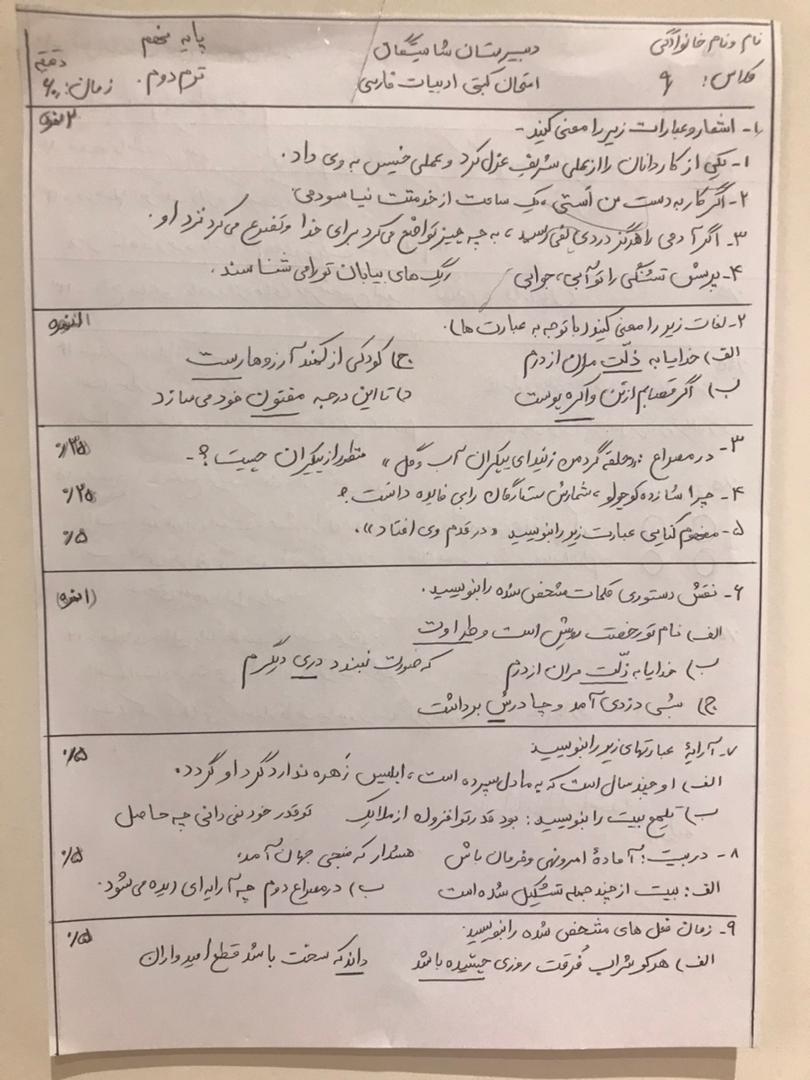 نام و نام خانوادگی دبیرستان پایه نهم
کلاس: ۹ امتحان کتبی ادبیات فارسی ترم دوم. زمان: ۶۰ دقیقه
۱- اشعار و عبارات زیر را معنی کنید - ۲ نمره
۱- یکی از کاردانان را از عملی شریف عزل کرد و عملی خسیس به وی داد.
۲- اگر کار به دست من اَستی، یک ساعت از خدمتت نیاسودمی
۳- اگر آدمی را هرگز دردی نمی‌رسید، به چه چیز تواضع می‌کرد برای خدا و تضرع می‌کرد نزد او.
۴- پرسش تشنگی را تو آبی، جوابی ریگ‌های بیابان تو را می‌شناسند.
۲- لغات زیر را معنی کنید (با توجه به عبارت ها). ۱ نمره
الف) خدایا به ذلّت مران از درم ج) کودکی از کمند آرزوها رست
ب) اگر قصابم از تن واکره پوست د) تا این درجه مفتون خود می‌سازد
۳- در مصراع: «حلقه گرد من زنید ای پیکران آب و گل» منظور از پیکران چیست؟ - ۰/۲۵
۴- چرا شازده کوچولو، شمارش ستارگان را بی فایده دانست؟ ۰/۲۵
۵- مفهوم کنایی عبارت زیر را بنویسید «در قدم وی افتاد». ۰/۵
۶- نقش دستوری کلمات مشخص شده را بنویسید. (۱ نمره)
الف) نام تو رخصت رویش است و طراوت
ب) خدایا به ذلّت مران از درم که صورت نبندد دری دیگرم
ج) شبی دزدی آمد و چادرش برداشت
۷- آرایهٔ عبارتهای زیر را بنویسید ۰/۵
الف) او چند سال است که به ما دل سپرده است، ابلیس زَهره ندارد گرد او گردد.
ب) تلمیح بیت را بنویسید: بود قدر تو افزون از ملایک تو قدر خود نمی‌دانی چه حاصل
۸- در بیت: آمادهٔ امر و نهی و فرمان باش هشدار که منجی جهان آمد، ۰/۵
الف: بیت از چند جمله تشکیل شده است ب) در مصراع دوم چه آرایه‌ای دیده می‌شود.
۹- زمان فعل های مشخص شده را بنویسید. ۰/۵
الف) هر کو شراب فُرقت روزی چشیده باشد داند که سخت باشد قطع امیدواران